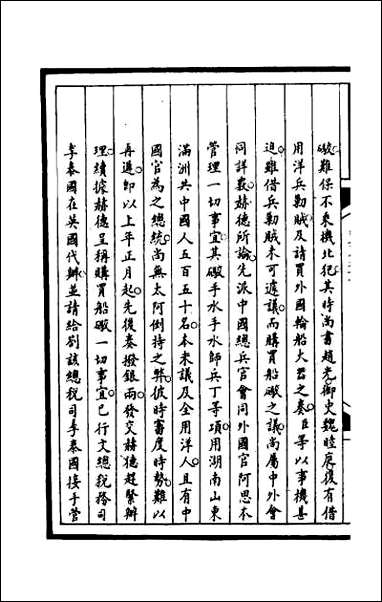 礮難保不乘機北犯其時尚書趙光御史魏睦庭復有借
用洋兵勦賊及請買外國輪船大礮之奏臣等以事機甚
迫雖借兵勦賊未可遽議而購買船礮之議尚屬中外會
同詳覈赫德所諭先派中國總兵官會同外國官阿思本
管理一切事宜其礮手水手水師兵丁等項用湖南山東
滿洲共中國人五百五十名本未議及全用洋人且有中
國官為之總統尚無太阿倒持之弊彼時審度時勢難以
再遲即以上年正月起先後奏撥銀兩發交赫德趕緊辦
理續據赫德呈稱購買船礮一切事宜已行文總稅務司
李泰國在英國代辦並請給劄該總稅司李泰國接手管